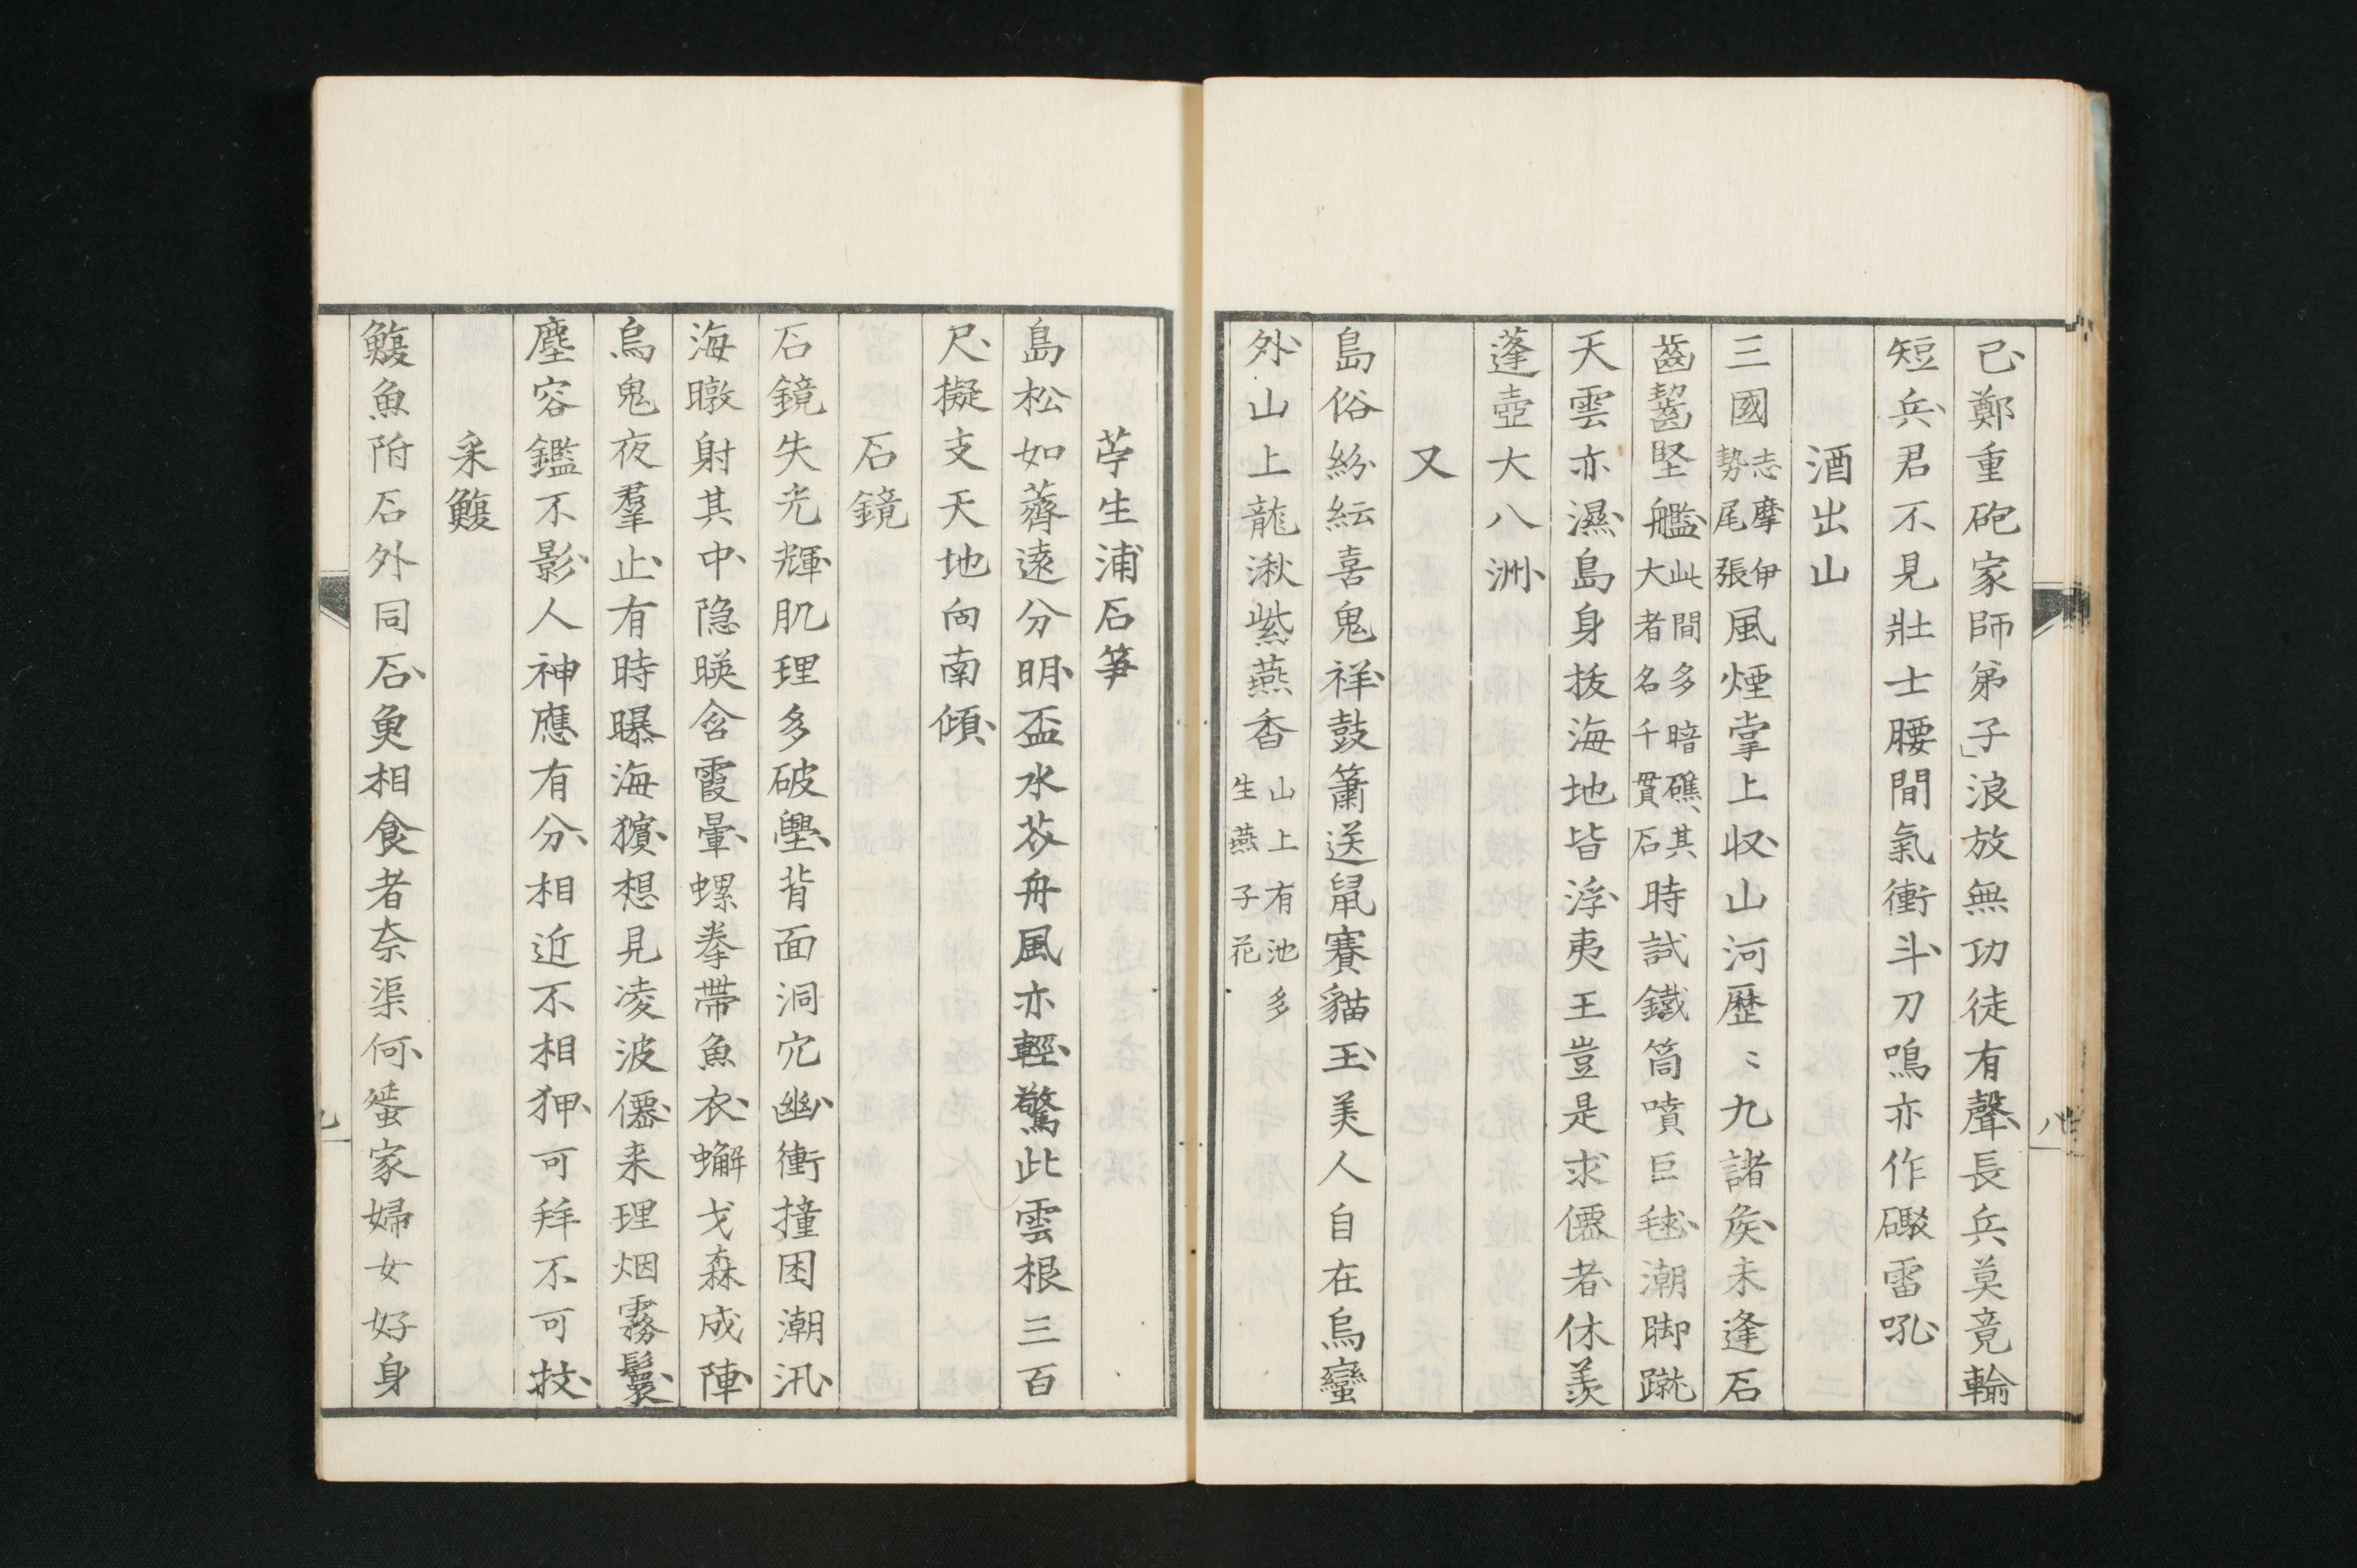 己鄭重砲家師弟子浪放無功徒有聲長兵莫竟輸
短兵君不見壯士腰間氣衝斗刀鳴亦作礮雷吼
酒出山
三國志摩伊勢尾張風煙掌上収山河歴〻九諸矦未逢石
齒齧堅艦此間多暗礁其大者名千貫石時試鐵筒噴巨毬潮脚蹴
天雲亦濕島身拔海地皆浮夷王豈是求僊者休羨
蓬壺大八洲
又
島俗紛紜喜鬼祥鼓簫送鼠賽貓王美人自在烏蠻
外山上龍湫紫燕香山上有池多生燕子花
八
苧生浦石筍
島松如薺遠分明盃水芥舟風亦輕驚此雲根三百
尺擬支天地向南傾
石鏡
石鏡失光輝肌理多破璺背面洞穴幽衝撞困潮汛
海暾射其中隐暎含霞暈螺拳帶魚衣蠏戈森成陣
烏鬼夜羣止有時曝海獱想見凌波僊来理烟霧鬟
塵容鑑不影人神應有分相近不相狎可拜不可抆
采鰒
鰒魚附石外同石臾相食者奈渠何蜑家婦女好身